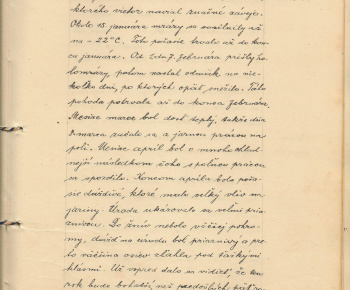 ktorého vietor navial značné záveje.
Okolo 15. januára mrázy sa zosilnily až
na -22°C. Toto počasie trvalo až do kon-
ca januára. Od 2 do 7. februára prišly ho-
lomrázy, potom nastal odmäk na nie-
koľko dní, po ktorých opäť snežilo. Táto
pohoda potrvala až do konca februára.
Mesiac marec bol dosť teplý, takže dňa
marca začalo sa s jarnou prácou na
poli. Mesiac apríl bol o mnoho chlad-
nejší následkom čoho s poľnou prácou
sa spozdilo. Koncom apríla bolo poča-
sie daždivé, ktoré malo veľký vliv na
jariny. Úroda ukázovala sa veľmi priaz-
nivou. Do žnív nebolo väčšej pohro-
my, dážď na úrodu bol priaznivý a pre-
to väčšina osiev zľahla pod ťažkými
hlavmi. Už vopred dalo sa vidieť, že ten
rok bude bohatší, než predošlých